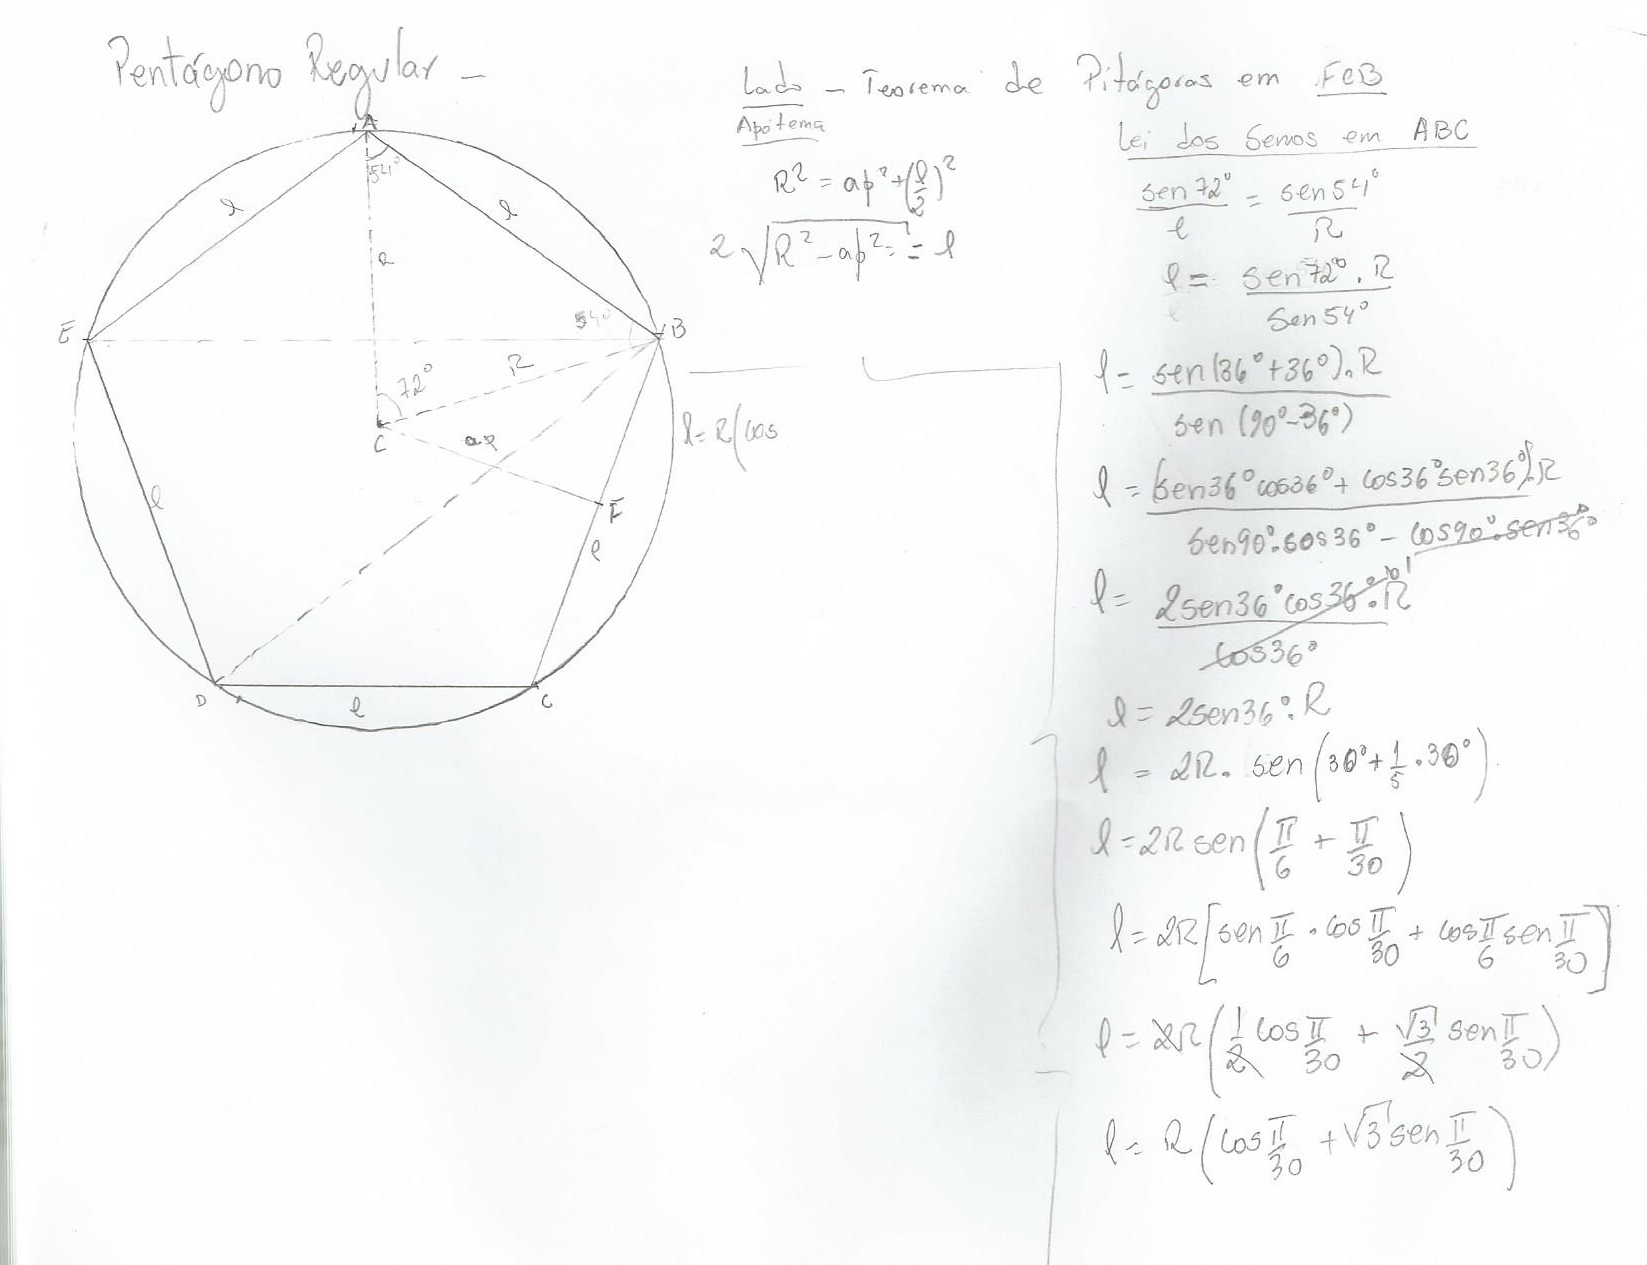 Pentágono Regular -
A
54°
l
l
R
E
54°
B
R
72°
C
ap
l
F
l
D
l
C
Lado - Teorema de Pitágoras em FCB
Apótema
R² = ap² + (l/2)²
2√(R² - ap²) = l
l = R(cos
Lei dos Senos em ABC
sen72°/l = sen54°/R
l = sen72° . R / sen54°
l = sen(36°+36°).R / sen(90°-36°)
l = (sen36°cos36° + cos36°sen36°).R / sen90°.cos36° - cos90°.sen36°
l = 2sen36°cos36°.R / cos36°
l = 2sen36°.R
l = 2R. sen(30° + 1/5 . 30°)
l = 2R sen(π/6 + π/30)
l = 2R[sen π/6 . cos π/30 + cos π/6 sen π/30]
l = 2R(1/2 cos π/30 + √3/2 sen π/30)
l = R(cos π/30 + √3 sen π/30)